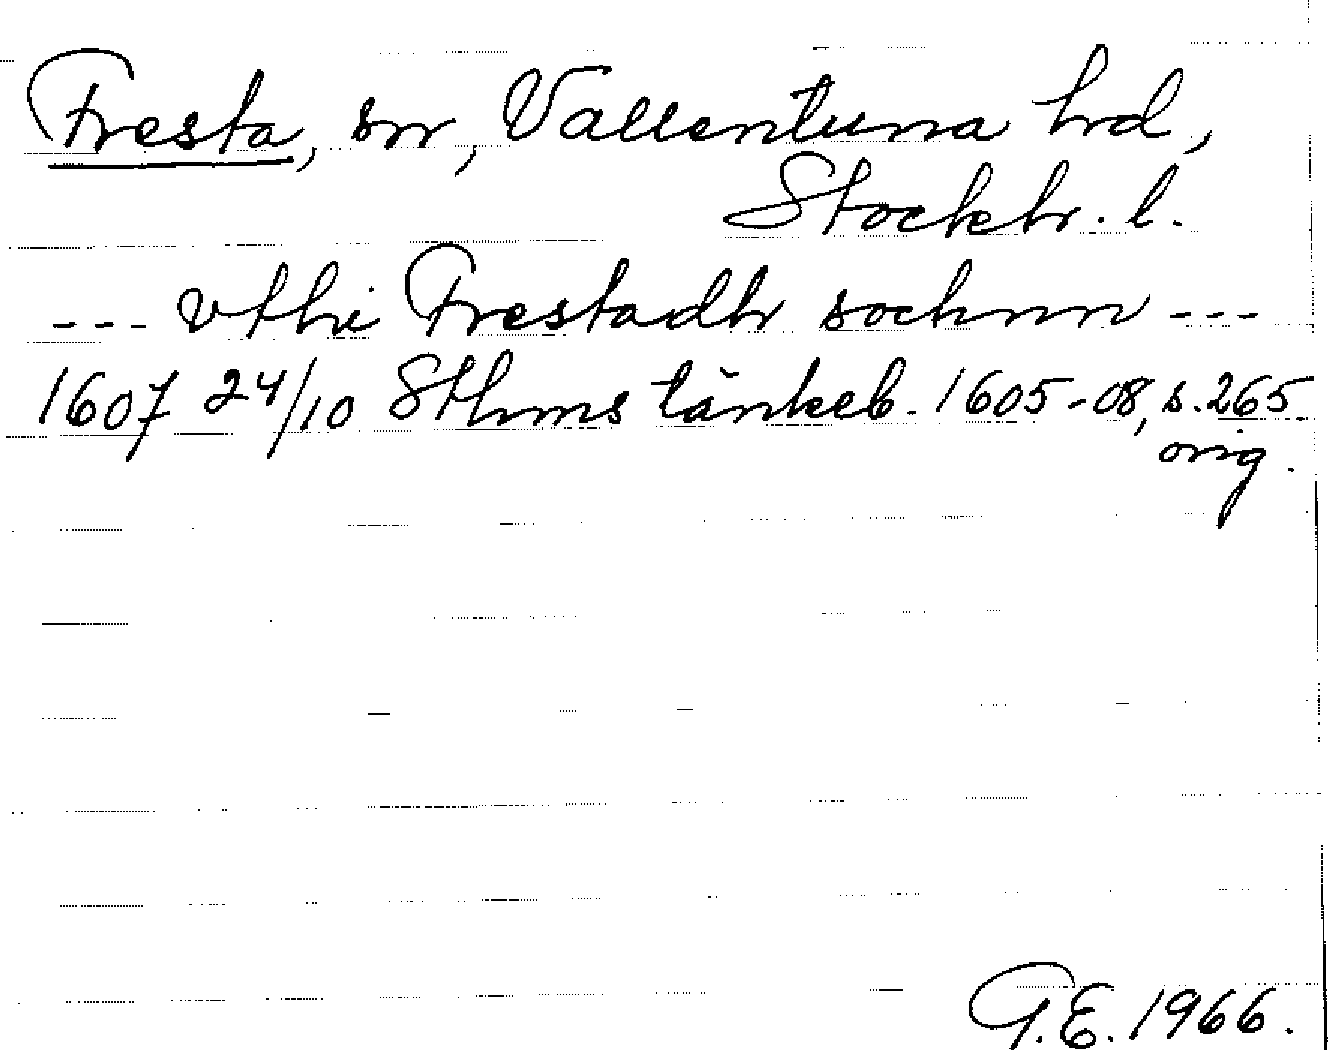 Fresta, sn, Vallentuna hd,
Stockh. l.
--- vthi Frestadh sochnn ---
1607 24/10 Sthms tänkeb. 1605-08, s. 265
orig.
G.E. 1966.